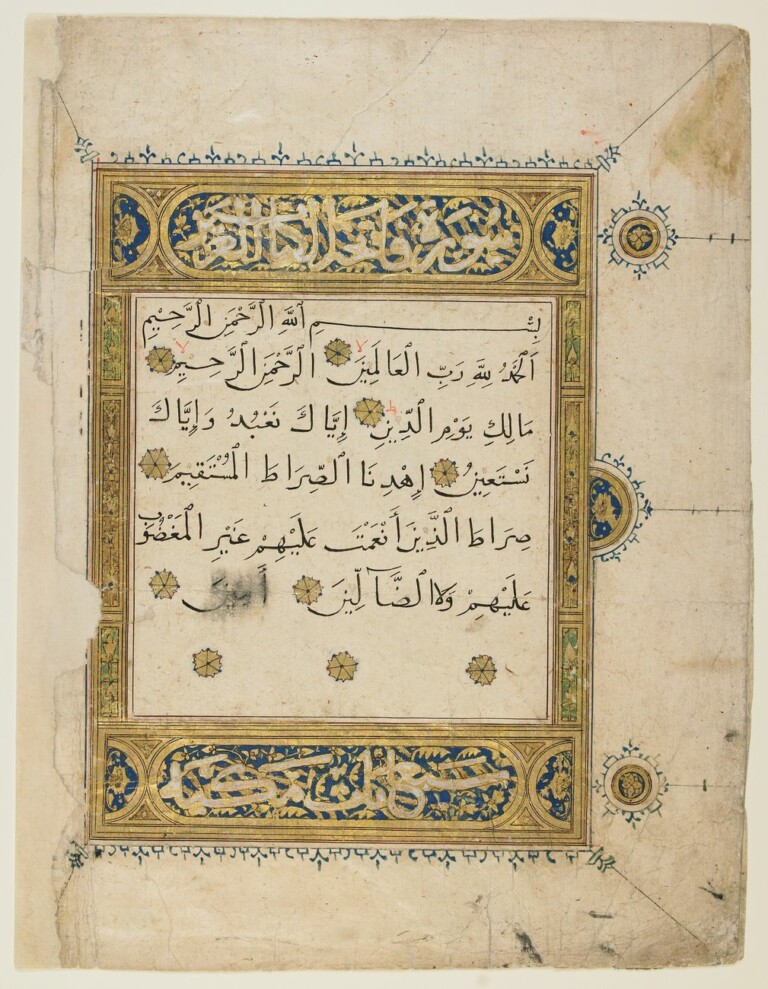 سورة فاتحة الكتاب العزيز
بِسْمِ اللهِ الرَّحْمٰنِ الرَّحِيمِ
اَلْحَمْدُ لِلّٰهِ رَبِّ الْعَالَمِينَ الرَّحْمٰنِ الرَّحِيمِ
مَالِكِ يَوْمِ الدِّينِ إِيَّاكَ نَعْبُدُ وَإِيَّاكَ
نَسْتَعِينُ إِهْدِنَا الصِّرَاطَ الْمُسْتَقِيمَ
صِرَاطَ الَّذِينَ أَنْعَمْتَ عَلَيْهِمْ غَيْرِ الْمَغْضُوبِ
عَلَيْهِمْ وَلَا الضَّآلِّينَ أَمِينَ
سبع آيات مكية